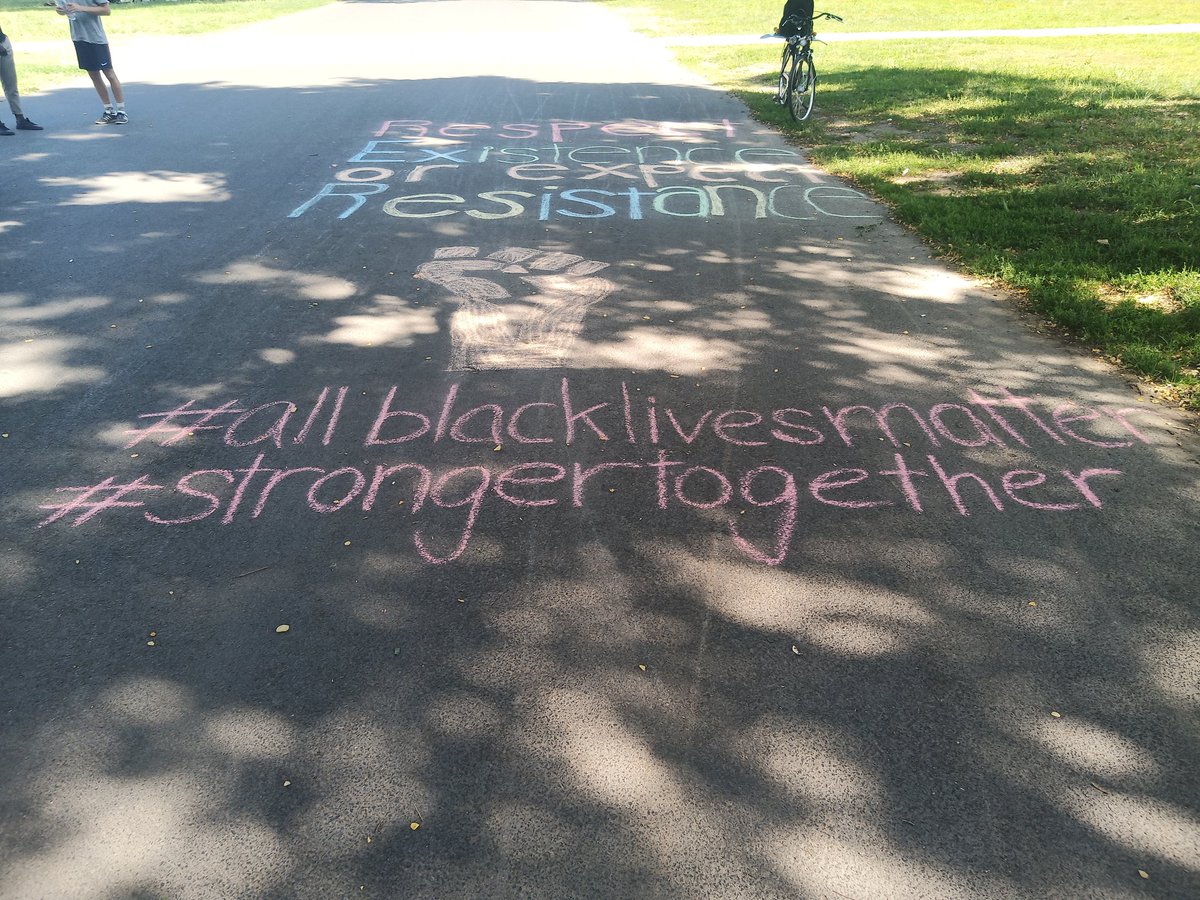 Respect
Existence
or expect
Resistance
#allblacklivesmatter
#strongertogether